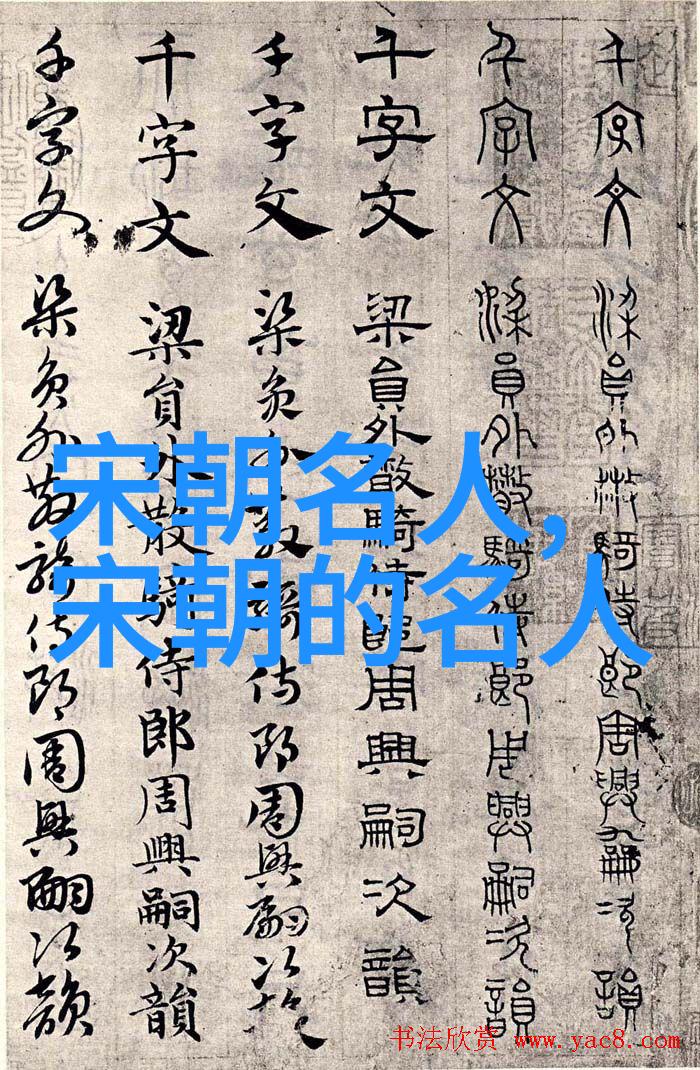 千字文 梁員外散騎侍郎周興嗣次韻
千字文 梁員外散騎侍郎周興嗣次韻
千字文 梁員外散騎侍郎周興嗣次韻
千字文 梁員外散騎侍郎周興嗣次韻
千字文 梁員外散騎侍郎周興嗣次韻
千字文 梁員外散騎侍郎周興嗣次韻
宋朝名人,
宋朝的名人
书法欣赏 www.yac8.com